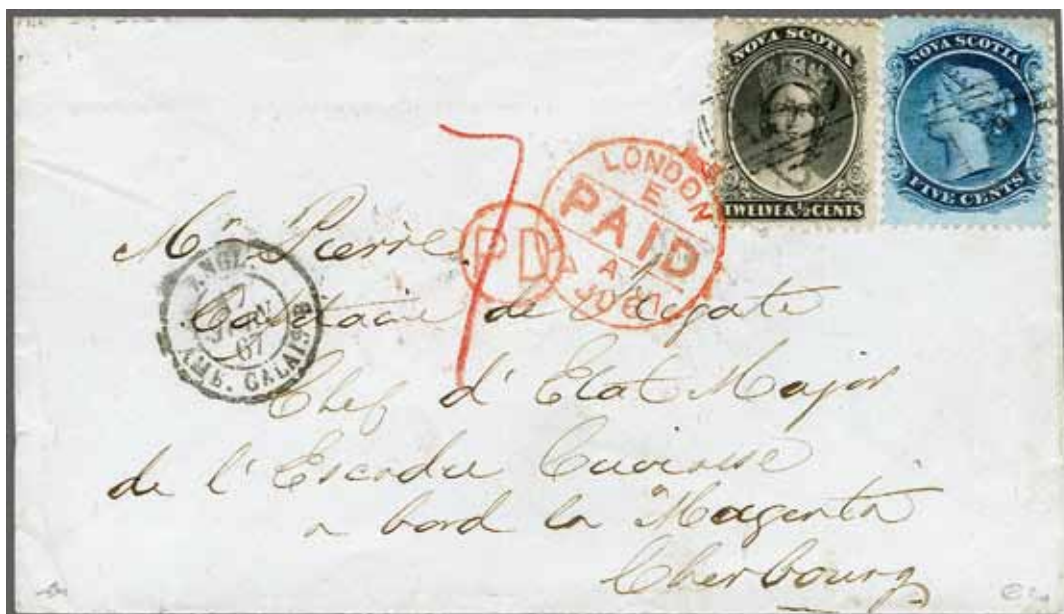 NOVA SCOTIA
TWELVE & ½ CENTS
NOVA SCOTIA
FIVE CENTS
LONDON
E
PAID
A
7 JU 67
7
PD
ANGL.
7
JUIN
67
AMB. CALAIS B
Mr Pierre
Capitaine de Frégate
Chef d'Etat Major
de l'Escadre Cuirasse
a bord la Magenta
Cherbourg